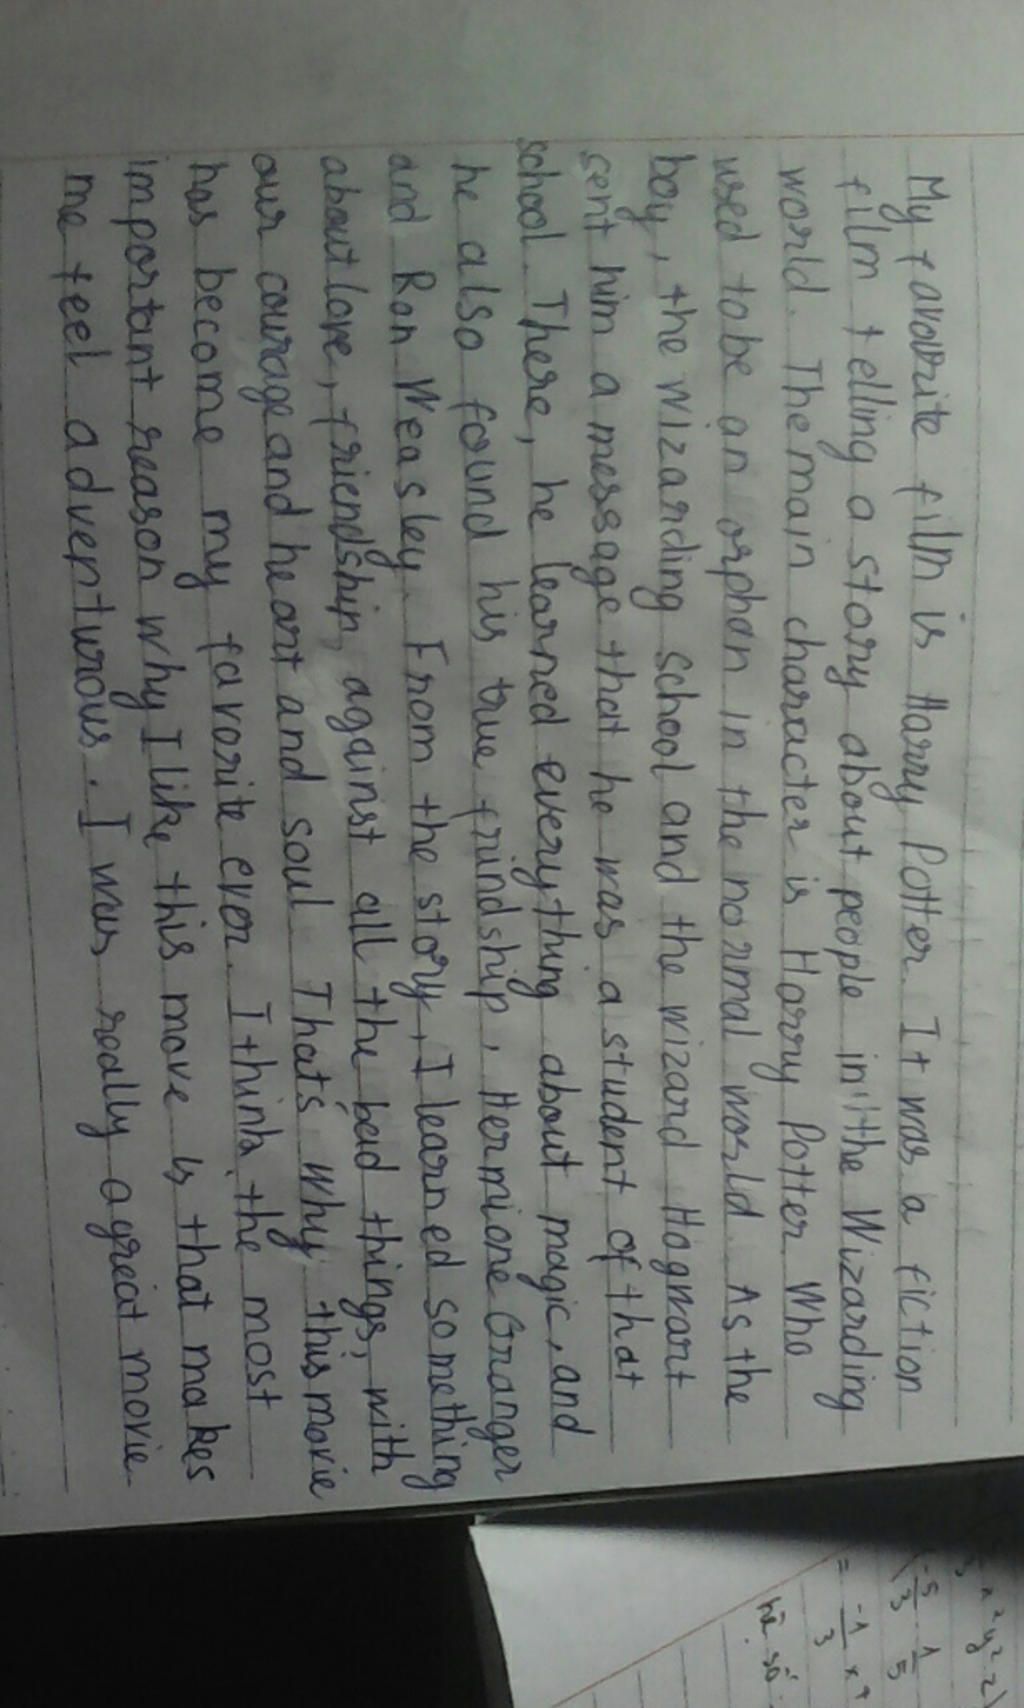 My favourite film is Harry Potter. It was a fiction
film telling a story about people in the Wizarding
world. The main character is Harry Potter. Who
used to be an orphan in the normal world. As the
boy, the wizarding school and the wizard Hogwart
sent him a message that he was a student of that
school. There, he learned everything about magic, and
he also found his true friendship, Hermione Granger
and Ron Weasley. From the story, I learned something
about love, friendship, against all the bad things, with
our courage and heart and soul. That's why this movie
has become my favorite ever. I think, the most
important reason why I like this move is that makes
me feel adventurous. I was really a great movie.
-5/3 1/5
= -1/3 x
hệ số